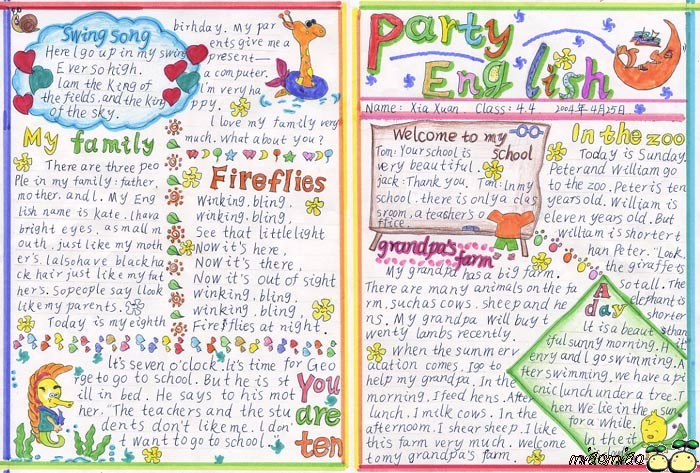 Swing song
Here I go up in my swing
Ever so high.
I am the King of
the fields, and the king
of the sky.
My family
There are three peo
ple in my family: father,
mother, and I. My Eng
lish name is Kate. I hava
bright eyes, a small m
outh, just like my moth
er's. I also have black ha
ck hair just like my fat
her's. So people say I look
like my parents.
Today is my eighth
birthday. My par
ents give me a
present—
a computer.
I'm very ha
ppy.
I love my family very
much. What about you?
Fireflies
Winking, bling,
winking, bling.
See that little light
Now it's here,
Now it's there,
Now it's out of sight
winking, bling,
winking, bling.
Fireflies at night.
It's seven o'clock. It's time for Geo
rge to go to school. But he is st
ill in bed. He says to his mot
her. "The teachers and the stu
dents don't like me. I don'
t want to go to school.
You
are
ten
Party
English
Name: Xia Xuan. Class: 4.4 2004年4月25日
Welcome to my
school
Tom: Your school is
very beautiful.
Jack: Thank you. Tom: In my
school, there is only a clas
sroom, a teacher's o
ffice.
In the zoo
Today is Sunday.
Peter and William go
to the zoo. Peter is ten
years old. William is
eleven years old. But
William is shorter t
han Peter. "Look,
the giraffe is
so tall. The
elephant is
shorter
than
grandpa's farm
My grandpa has a big farm.
There are many animals on the fa
rm, such as cows, sheep and he
ns. My grandpa will buy t
wenty lambs recently.
When the summer v
acation comes. I go to
help my grandpa. In the
morning. I feed hens. After
lunch. I milk cows. In the
afternoon. I shear sheep. I like
this farm very much. Welcome
to my grandpa's farm.
A
day
It is a beaut
iful sunny morning. H
enry and I go swimming. A
fter swimming, we have a pi
cnic lunch under a tree. T
hen We lie in the sun
for a while.
In the
miaomiao